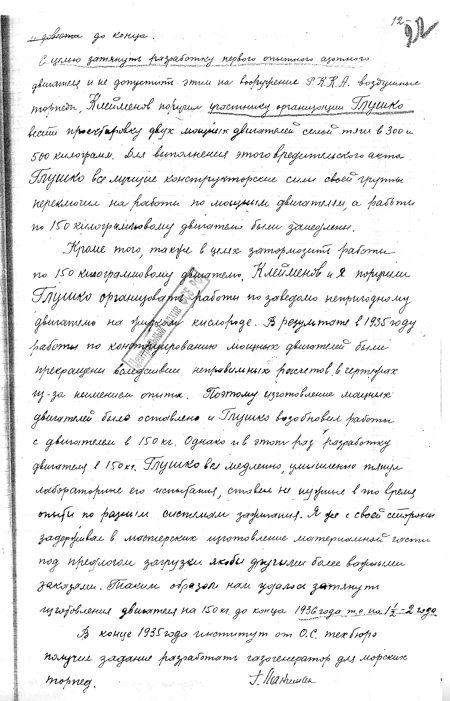 12-
92
и довести до конца.
С целью затянуть разработку первого опытного азотного
двигателя и не допустить этим на вооружение Р.К.К.А. воздушные
торпеды, Клейменов поручил участнику организации Глушко
вести проектировку двух мощных двигателей силой тяги в 300 и
500 килограмм. Для выполнения этого вредительского акта
Глушко все лучшие конструкторские силы своей группы
переключил на работы по мощным двигателям, а работы
по 150 килограммовому двигателю были замедлены.
Кроме того, также в целях затормозить работы
по 150 килограммовому двигателю, Клейменов и я поручили
Глушко организовать работы по заведомо непригодному
двигателю на жидком кислороде. В результате в 1935 году
работы по конструированию мощных двигателей были
прекращены вследствии неправильных расчетов, в чертежах
из-за неимением опыта. Поэтому изготовление мощных
двигателей было оставлено и Глушко возобновил работы
с двигателем в 150 кг. Однако и в этот раз разработку
двигателя в 150 кг. Глушко вел медленно, умышленно тянул
лабораторные его испытания, ставил не нужные в то время
опыты по разным системам зажигания. Я же с своей стороны
задерживал в мастерских изготовление материальной части
под предлогом загрузки якобы другими более важными
заказами. Таким образом нам удалось затянуть
изготовления двигателя на 150 кг. до конца 1936 года т.е. на 1½-2 года.
В конце 1935 года институт от О.С. техбюро
получил задание разработать газогенератор для морских
торпед.
Г. Лангемак
Центральный архив ФСБ РФ